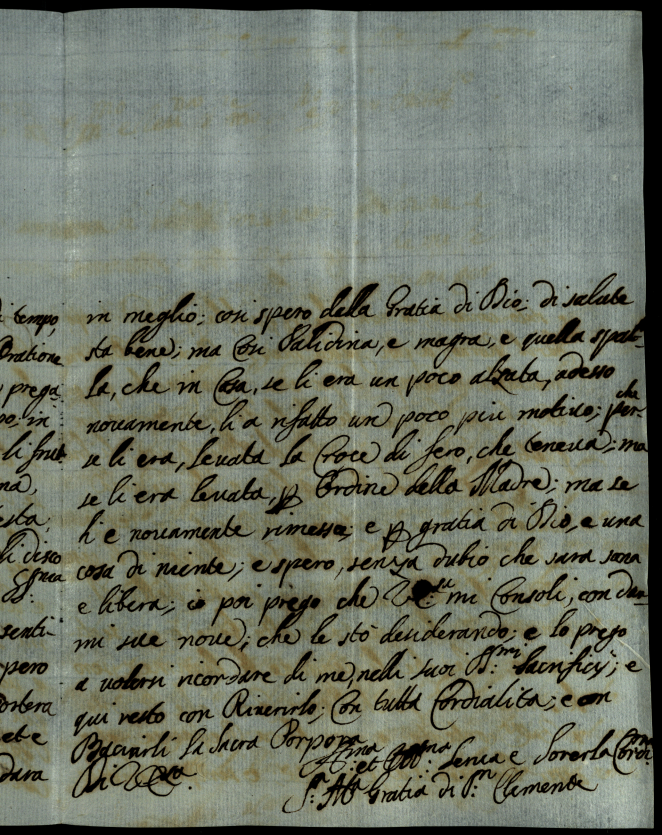 in meglio; cosi spero della Gratia di Dio; di salute
tempo,
sta bene; ma Cosi Palidina, e magra, e quella spal-
Oratione
la, che in Casa, se li era un poco alzata, adesso
prega
novamente, li a rifatto un poco piu motivo; per-
che
po: in
se li era, levata la Croce di fero, che teneva; ma
li frut
se li era levata, p ordine della Madre; ma se
na,
li e novamente rimessa; e p gratia di Dio, e una
esta;
cosa di niente; e spero, senza dubio che sara sana
li disco
e libera; io poi prego che mi Consoli, con dar-
mi sue nove; che le sto desiderando; e lo prego
senti-
a volersi ricordare di me, nelli suoi SS:mi Sacrificij; e
pero
qui resto con Riverirlo; Con tutta Cordialita; e con
ostera
Baciarli la Sacra Porpora
et e
Di
Aff:ma et Obb:ma Serva e Sorella Cord:ma
dara
S:r Ma Gratia di S:n Clemente